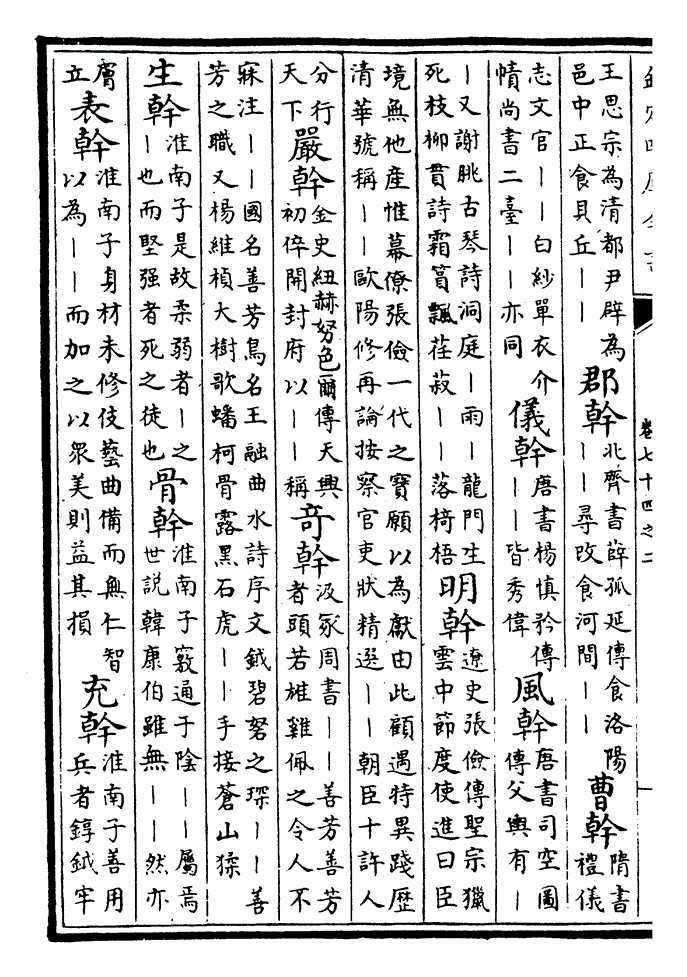 欽定四庫全書
卷七十四之二
王思宗為清都尹辟為邑中正食貝丘｜｜郡幹北齊書薛孤延傳食洛陽｜｜尋改食河間｜｜曹幹隋書禮儀
志文官｜｜白紗單衣介幘尚書二臺｜｜亦同儀幹唐書楊慎矜傳｜｜皆秀偉風幹唐書司空圖傳父輿有｜
｜又謝朓古琴詩洞庭｜雨｜龍門生死枝柳貫詩霜篔飄荏菽｜｜落椅梧明幹遼史張儉傳聖宗獵雲中節度使進曰臣
境無他產惟幕僚張儉一代之寶願以為獻由此顧遇特異踐歷清華號稱｜｜歐陽修再論按察官吏狀精選｜｜朝臣十許人
分行天下嚴幹金史紐赫努色爾傳天興初倅開封府以｜｜稱奇幹汲冢周書｜｜善芳善芳者頭若雄雞佩之令人不
寐注｜｜國名善芳鳥名王融曲水詩序文鉞碧砮之琛｜｜善芳之職又楊維楨大樹歌蟠柯骨露黑石虎｜｜手接蒼山猱
生幹淮南子是故柔弱者｜之｜也而堅强者死之徒也骨幹淮南子竅通于陰｜｜屬焉世説韓康伯雖無｜｜然亦
膚立表幹淮南子身材未修伎藝曲備而無仁智以為｜｜而加之以衆美則益其損充幹淮南子善用兵者錞鉞牢